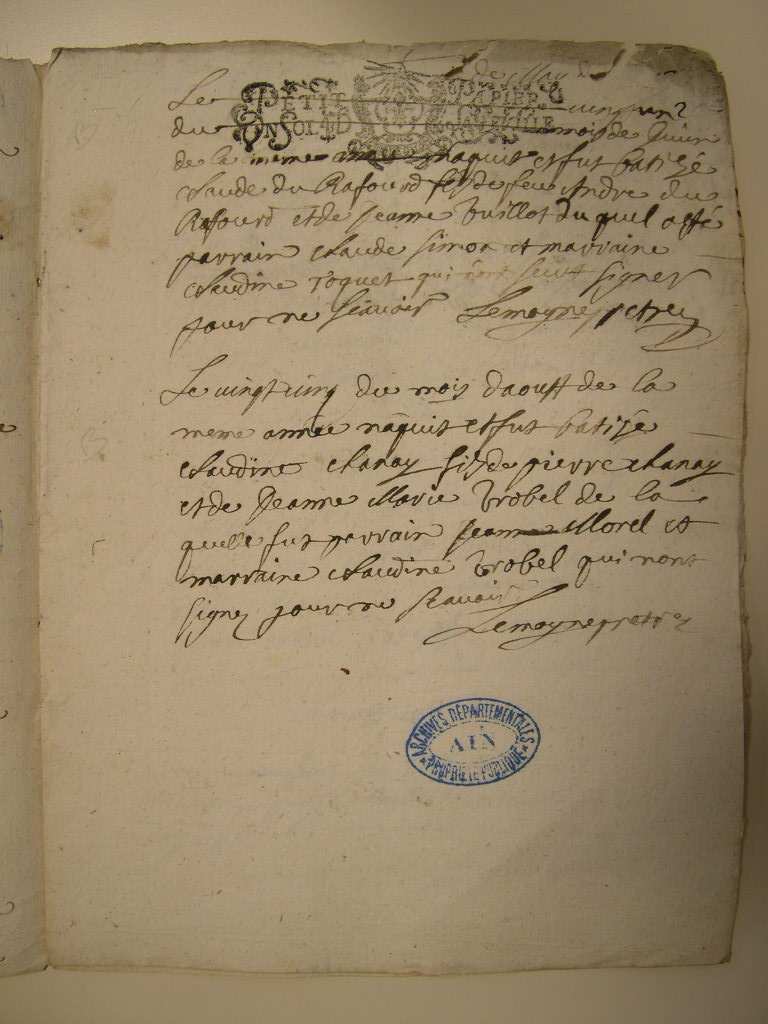 de May
PETIT PAPIER
UN SOL 4 D LA FEUILLE
Le vingt un
du mois de Juin
de la meme naquit et fut batizé
claude du Rafourd filz de feu Andre du
Rafourd et de Jeanne Vuillot duquel a esté
parrain claude Simon et marraine
claudine roquet qui nont signez
pour ne scavoir Lemoyne pretre
Le vingt cinq du mois daoust de la
meme année naquit et fut batizée
claudine chanay filz de pierre chanay
et de Jeanne Marie Brobel de la
quelle fut parrain Morel et
marraine claudine Brobel qui nont
signez pour ne scavoir
Lemoyne pretre
ARCHIVES DÉPARTEMENTALES
AIN
PROPRIÉTÉ PUBLIQUE